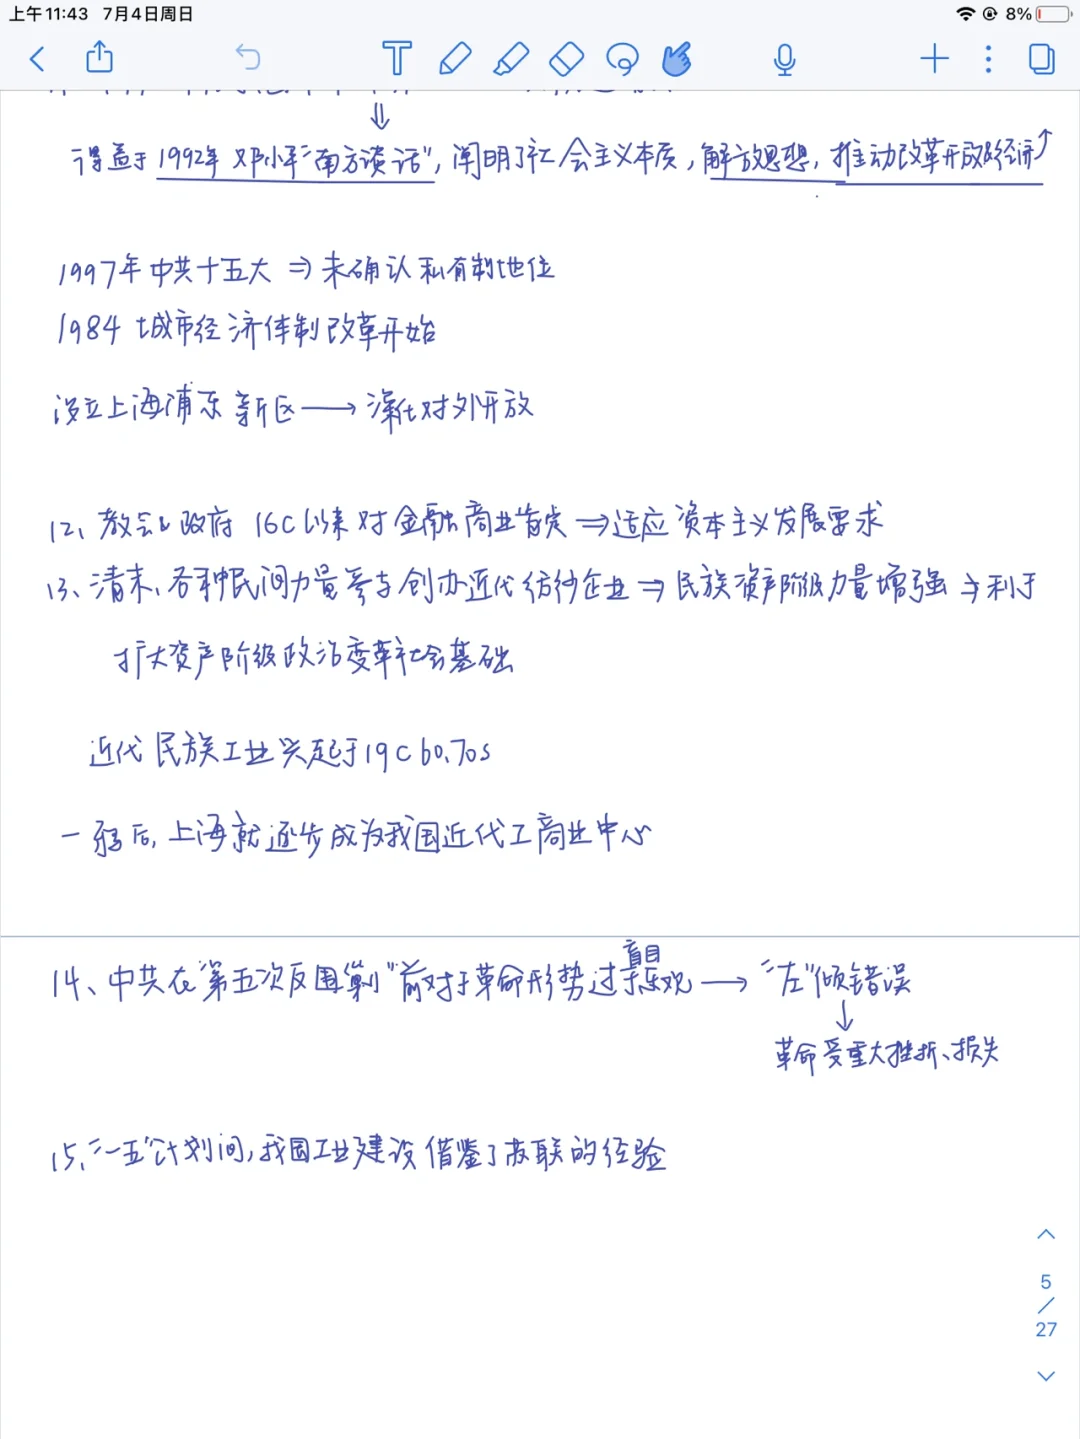 上午11:43 7月4日周日
8%
T
⇓
得益于1992年邓小平"南方谈话",阐明了社会主义本质,解放思想,推动改革开放&经济↑
1997年中共十五大 ⇒ 未确认私有制地位
1984 城市经济体制改革开始
设立上海浦东新区 → 深化对外开放
12、教会&政府 16C以来对金融商业肯定 ⇒ 适应资本主义发展要求
13、清末,各种民间力量参与创办近代纺纱企业 ⇒ 民族资产阶级力量增强 ⇒ 利于
扩大资产阶级政治变革社会基础
近代民族工业兴起于19C 60,70s
一鸦后,上海就逐步成为我国近代工商业中心
盲目
14、中共在"第五次反围剿"前对于革命形势过于乐观 → "左"倾错误
↓
革命受重大挫折、损失
15、"一五"计划间,我国工业建设借鉴了苏联的经验
5
/
27